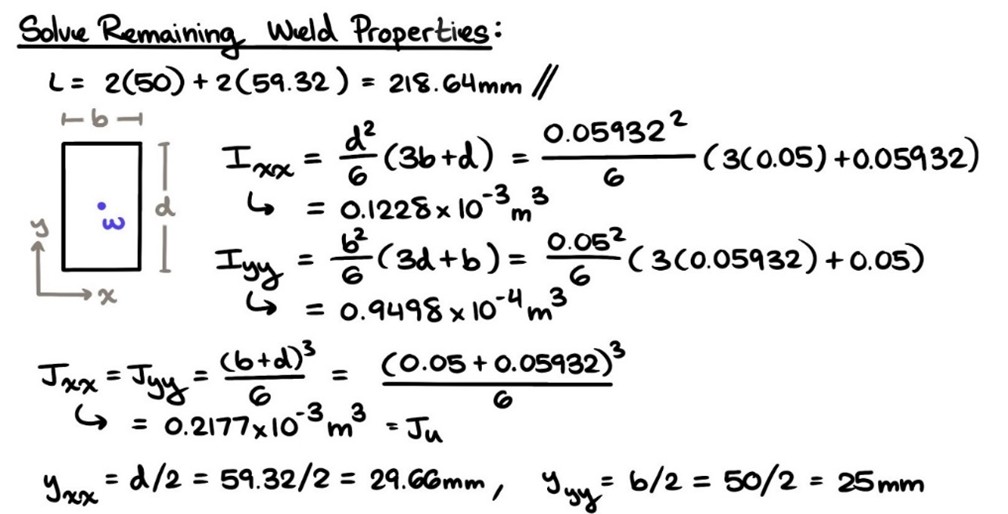 Solve Remaining Weld Properties:
L = 2(50) + 2(59.32) = 218.64mm //
b
d
w
y
x
Ixx = d²/6 (3b+d) = 0.05932²/6 (3(0.05)+0.05932)
↳ = 0.1228 × 10⁻³ m³
Iyy = b²/6 (3d+b) = 0.05²/6 (3(0.05932)+0.05)
↳ = 0.9498 × 10⁻⁴ m³
Jxx = Jyy = (b+d)³/6 = (0.05 + 0.05932)³/6
↳ = 0.2177×10⁻³ m³ = Ju
yxx = d/2 = 59.32/2 = 29.66mm, yyy = b/2 = 50/2 = 25mm